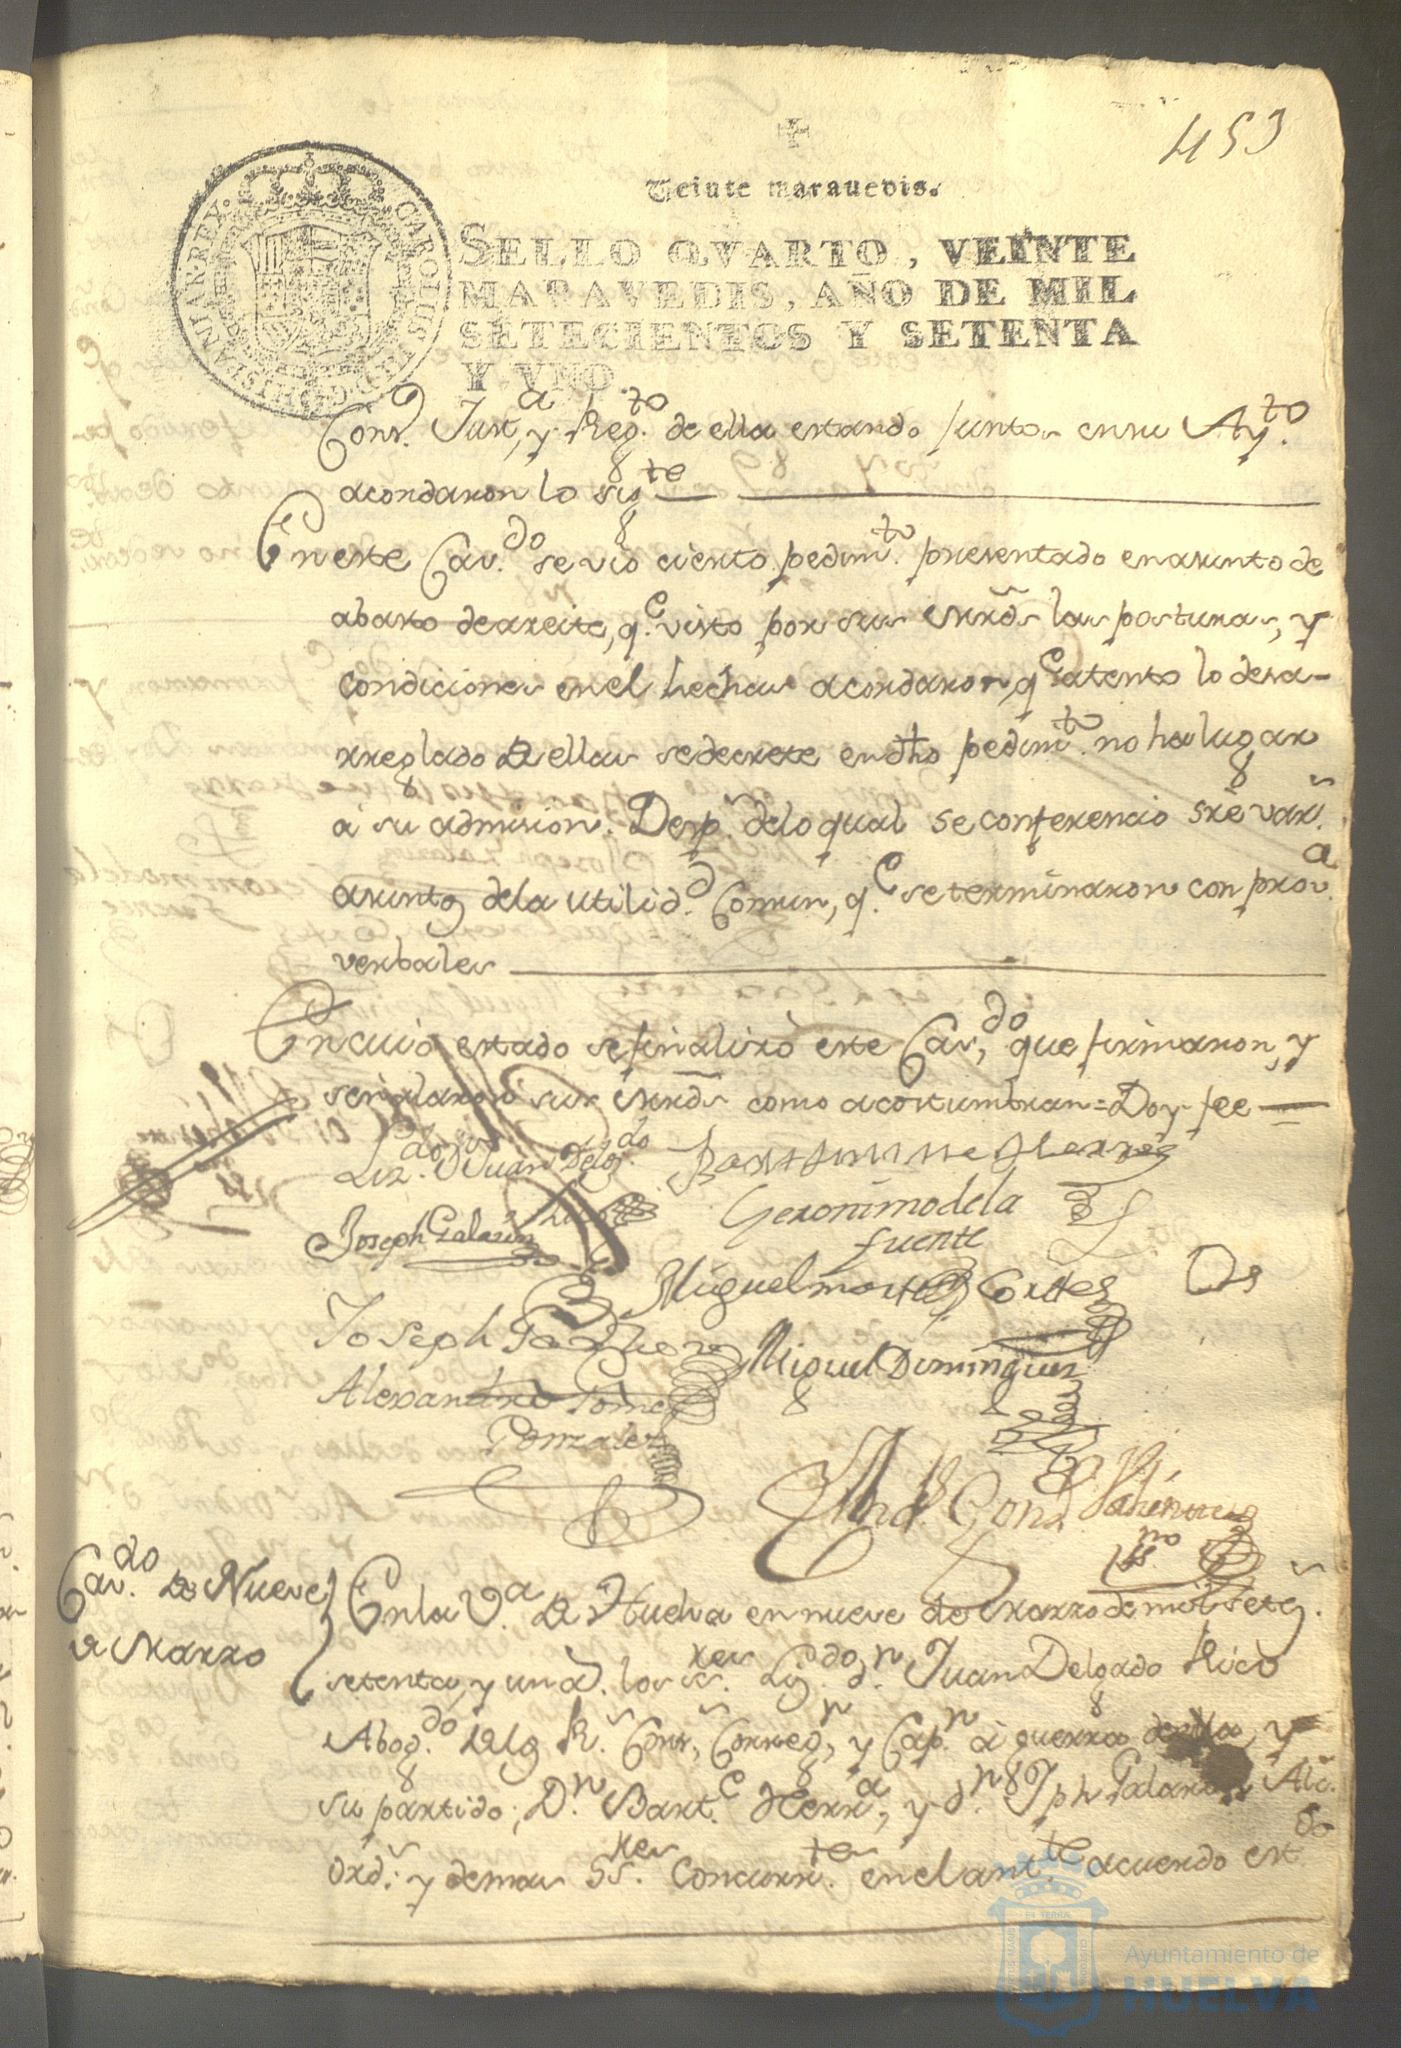 453
Veinte maravedis.
SELLO QVARTO, VEINTE
MARAVEDIS, AÑO DE MIL
SETECIENTOS Y SETENTA
Y VNO.
CAROLUS III D. G. HISPANIAR. REX.
Cons. Just.ª y Reg.to de ella estando juntos en su Ay.to
acordaron lo sig.te
En este Cav.do se vio cierto pedim.to presentado en asunto de
abasto de aceite, q.e visto por sus mrds las posturas, y
condiciones en el hechas acordaron, q.e atento lo desa-
rreglado de ellas se decrete en dho pedim.to no ha lugar
a su admision. Desp.s de lo qual se conferencio sre var.s
asuntos de la utilid.d Comun, q.e se terminaron con prov.a
verbales
En cuio estado se finalizò este Cav.do que firmaron, y
señalaron sus mrds como acostumbran = Doy fee
Liz.do Dn Juan Delg.do
Rico
Bartholome Herrera
Joseph Galarza
Geronimo de la
fuente
Miguel Cortes
Joseph
Miguel Dominguez
Alexandro Tome
Gonzalez
Gonz
Cav.do de Nueve
de Marzo
En la V.a de Huelva en nueve de Marzo de mil sets.
setenta, y un a.s los ss.res Liz.do d.n Juan Delgado Rico
Abog.do de los R.s Cons.s Correg.r y Cap.n à guerra de ella, y
su partido, D.n Bart.e Herr.a, y d.n Jph Galarza Alc.s
Ord.s y demas SS.res Concurr.tes en el ant.te acuerdo est.do
Ayuntamiento de
HUELVA